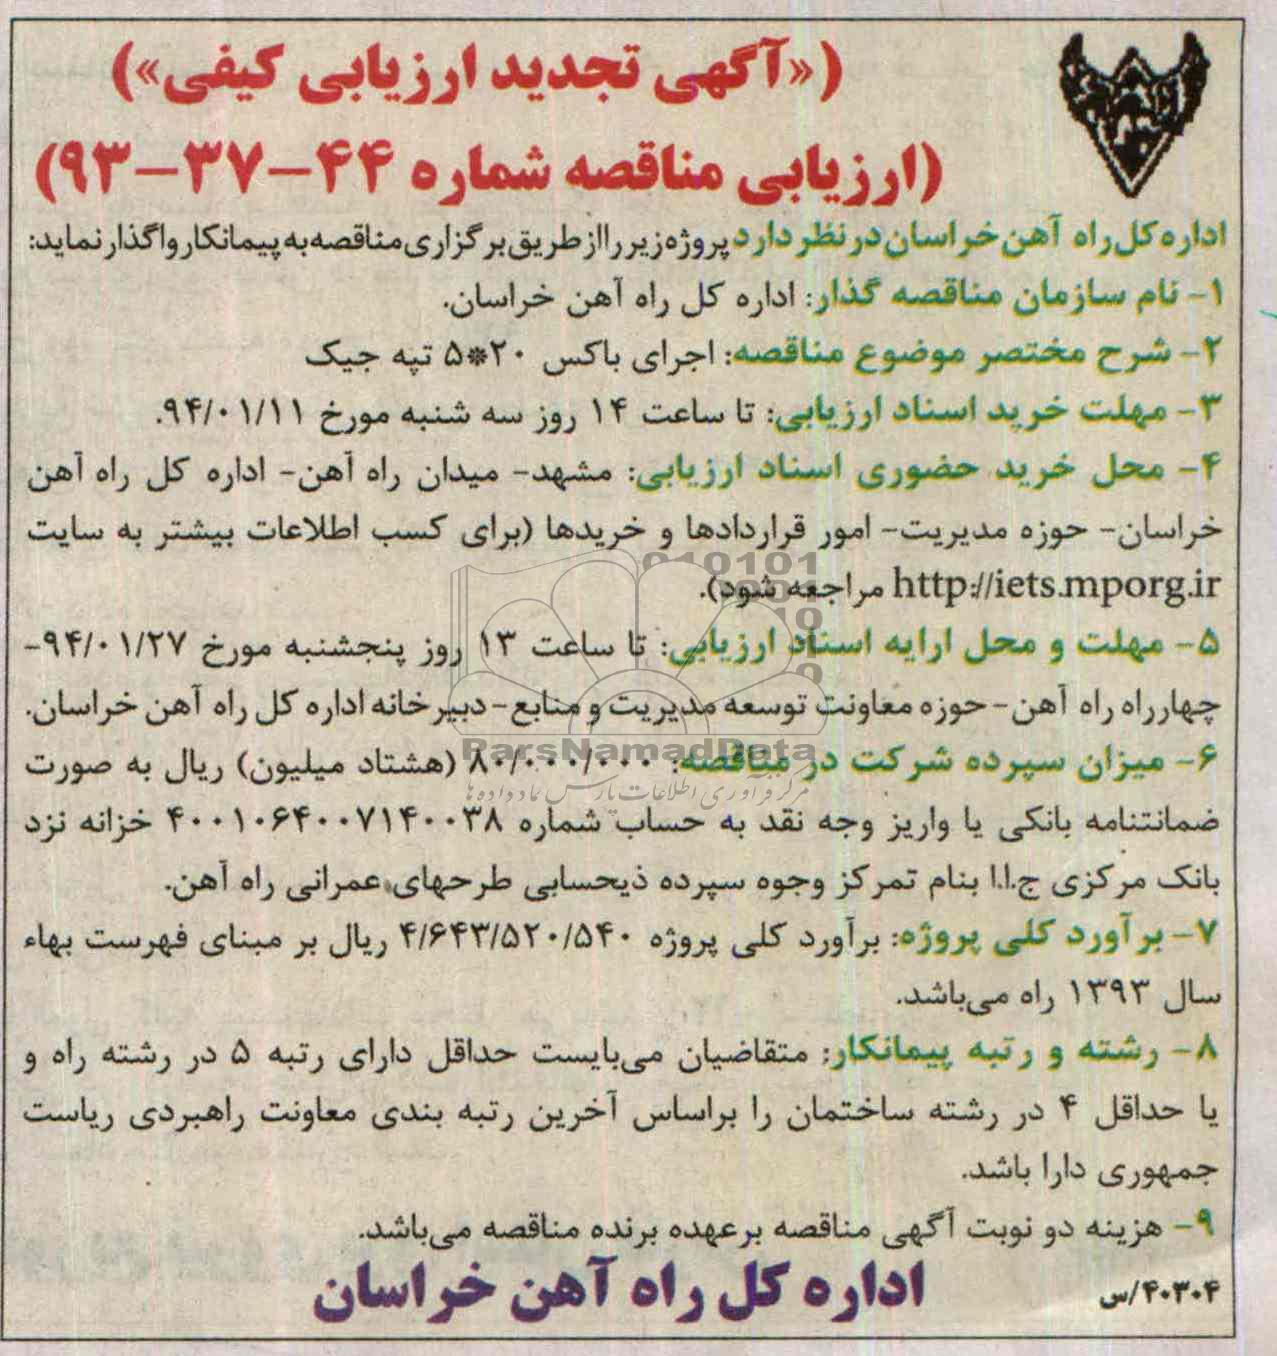 («آگهی تجدید ارزیابی کیفی»)
(ارزیابی مناقصه شماره ۴۴-۳۷-۹۳)
اداره کل راه آهن خراسان در نظر دارد پروژه زیر را از طریق برگزاری مناقصه به پیمانکار واگذار نماید:
۱- نام سازمان مناقصه گذار: اداره کل راه آهن خراسان.
۲- شرح مختصر موضوع مناقصه: اجرای باکس ۲۰*۵ تپه جیک
۳- مهلت خرید اسناد ارزیابی: تا ساعت ۱۴ روز سه شنبه مورخ ۹۴/۰۱/۱۱.
۴- محل خرید حضوری اسناد ارزیابی: مشهد- میدان راه آهن- اداره کل راه آهن
خراسان- حوزه مدیریت- امور قراردادها و خریدها (برای کسب اطلاعات بیشتر به سایت
http://iets.mporg.ir مراجعه شود).
۵- مهلت و محل ارایه اسناد ارزیابی: تا ساعت ۱۳ روز پنجشنبه مورخ ۹۴/۰۱/۲۷-
چهارراه راه آهن- حوزه معاونت توسعه مدیریت و منابع- دبیرخانه اداره کل راه آهن خراسان.
ParsNamadData
۶- میزان سپرده شرکت در مناقصه: ۸۰/۰۰۰/۰۰۰ (هشتاد میلیون) ریال به صورت
مرکز فرآوری اطلاعات پارس نماد داده ها
ضمانتنامه بانکی یا واریز وجه نقد به حساب شماره ۴۰۰۱۰۶۴۰۰۷۱۴۰۰۳۸ خزانه نزد
بانک مرکزی ج.ا.ا بنام تمرکز وجوه سپرده ذیحسابی طرحهای عمرانی راه آهن.
۷- برآورد کلی پروژه: برآورد کلی پروژه ۴/۶۴۳/۵۲۰/۵۴۰ ریال بر مبنای فهرست بهاء
سال ۱۳۹۳ راه می‌باشد.
۸- رشته و رتبه پیمانکار: متقاضیان می‌بایست حداقل دارای رتبه ۵ در رشته راه و
یا حداقل ۴ در رشته ساختمان را براساس آخرین رتبه بندی معاونت راهبردی ریاست
جمهوری دارا باشد.
۹- هزینه دو نوبت آگهی مناقصه برعهده برنده مناقصه می‌باشد.
۴۰۳۰۴/س
اداره کل راه آهن خراسان